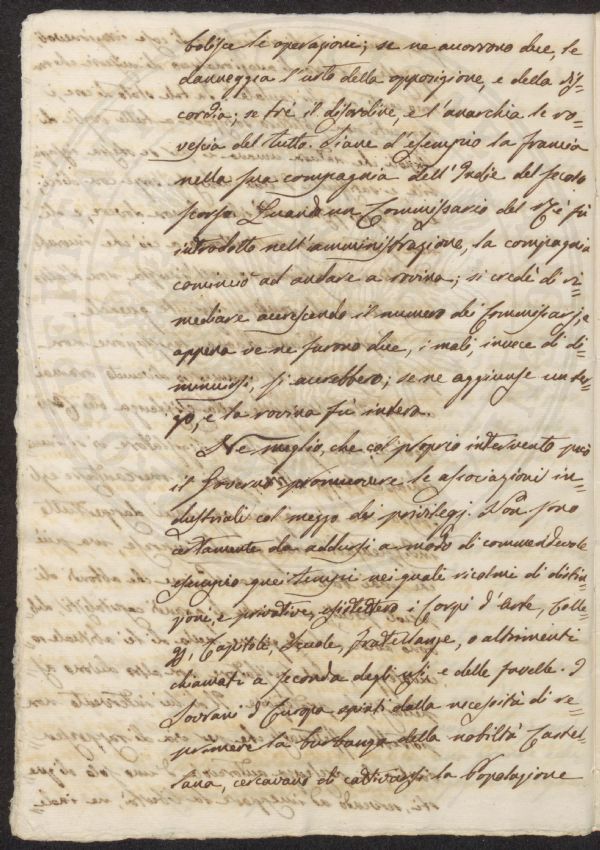 bolisce le operazioni; se ne accorrono due, le
danneggia l'urto della opposizione, e della dis=
cordia; se tré il disordine, e l'anarchia le ro=
vescia del tutto. Siane d'esempio la francia
nella sua compagnia dell'Indie del secolo
scorso. Quando un Commissario del Ré fù
introdotto nell'amministrazione, la compagnia
cominciò ad andare a rovina; si credè di ri=
mediare accrescendo il numero dei Commissarj, e
appena ve ne furono due, i mali, invece di di=
minuirsi, si accrebbero; se ne aggiunse un ter=
zo, e la rovina fù intera.
Ne meglio, che col proprio intervento può
il Governo promuovere le associazioni in=
dustriali col mezzo dei privileggj. Non sono
certamente da addursi a modo di commendevole
esempio quei tempi nei quali ricolmi di distin=
zione, e privative, esistettero i Corpi d'Arte, Colle=
gj, Capitoli, Scuole, fratellanze, o altrimenti
chiamati a seconda degli usi e delle favelle. I
Sovrani d'Europa spinti dalla necessità di re=
primere la burbanza della nobiltà Castel=
lana, cercavano di cattivarsi la Popolazione